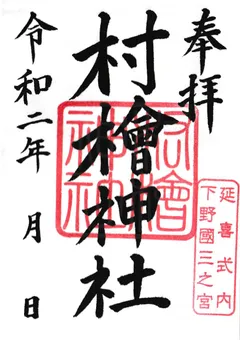 奉拝
村檜神社
令和二年 月 日
延喜式内
下野國三之宮
村檜神社